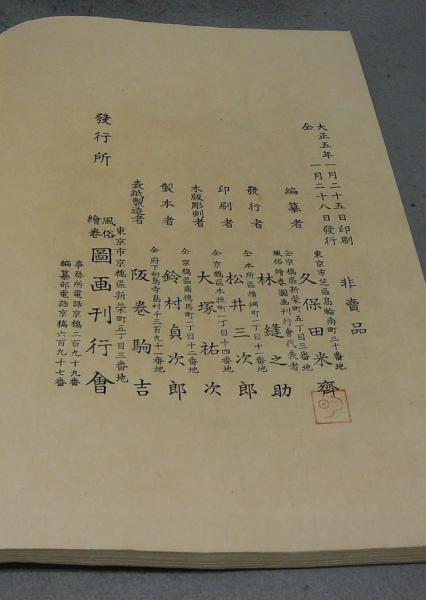 非賣品
大正五年一月二十五日印刷
仝 一月二十八日發行
編纂者
東京市芝區高輪南町三十番地
久保田米齊
發行者
仝京橋區新榮町五丁目三番地
風俗繪卷圖画刊行會代表者
林縫之助
印刷者
仝本所區横網町一丁目十二番地
松井三次郎
木版彫刻者
仝京橋區木挽町一丁目十四番地
大塚祐次
製本者
仝京橋區南傳馬町一丁目十二番地
鈴村貞次郎
表紙製造者
仝府下
阪巻駒吉
發行所
東京市京橋區新榮町五丁目三番地
風俗繪卷圖画刊行會
事務所電話京橋二百九十九番
編纂部電話京橋六百九十七番